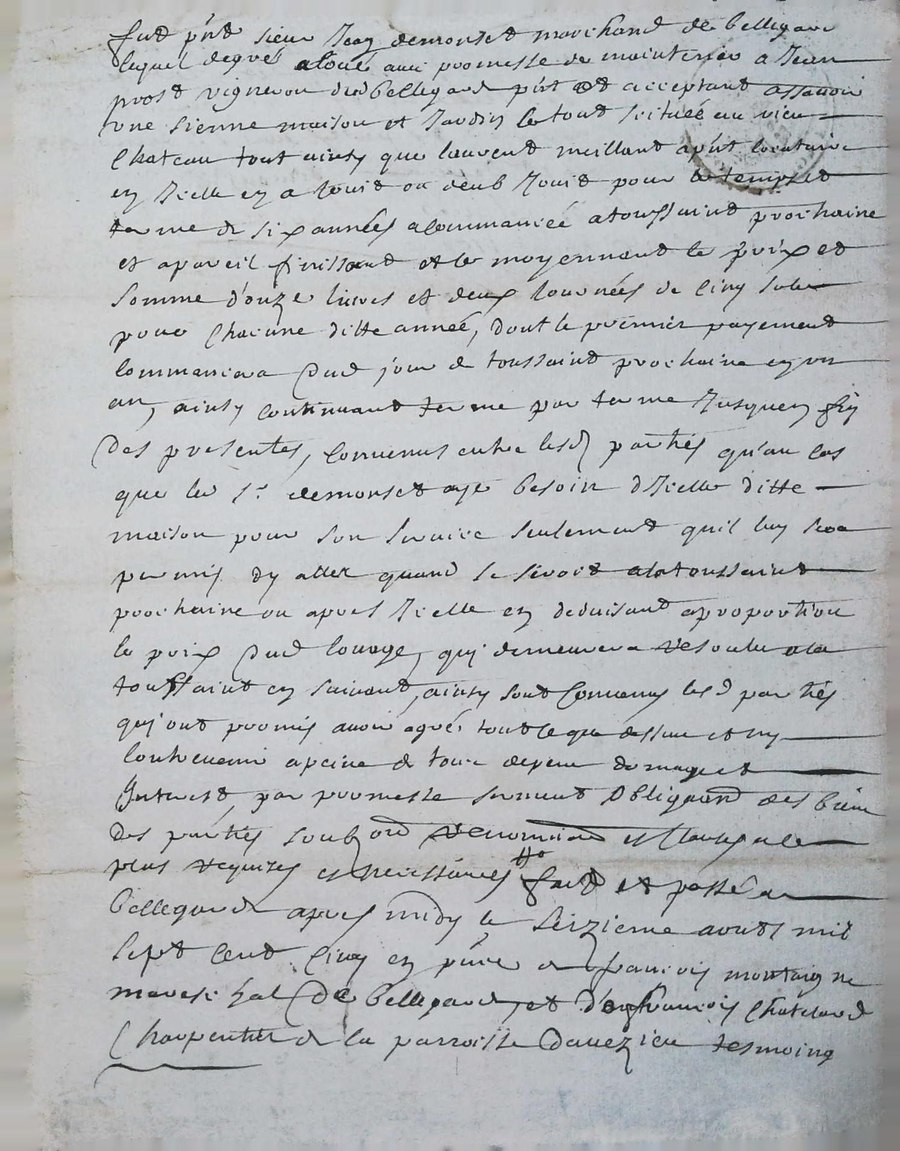 fut p'nt sieur Jean demonset marchand de bellegarde
lequel degré a loué avec promesse de maintenir a Jean
prost vigneron de bellegarde p'nt et acceptant assavoir
une sienne maison et Jardin le tout scitué au vieu
Chateau tout ainsy que laurent meillant ap'nt locataire
en Jcelle en a Jouit ou deub Jouir pour le temps et
terme de six années a commancée a toussaint prochaine
et a pareil finissant et le moyennant le prix et
somme d'onze livres et deux Journées de cinq sols
pour chacune ditte année, dont le premier payement
commancera dud jour de toussaint prochaine en un
an, ainsy continuant terme par terme Jusques en fin
des presentes, convenus entre lesd parties qu'au cas
que le sr demonset aye besoin d'Jcelle ditte
maison pour son service seulement quil luy sera
permis dy aller quand ce seroit a la toussaint
prochaine ou apres Jcelle en deduisant a proportion
le prix dud louage, qui demeurera resoulu a la
toussaint en suivant, ainsy sont convenus lesd parties
qui ont promis avoir agréé tout le que dessus et ny
contrevenir a peine de tous depens domages et
Interest, par promesse serment obligaon des biens
des parties soubz et clauses
plus requises et necessaires fait et passé a
bellegarde apres midy le seizieme aoust mil
sept cent cinq en p'nce de francois montaigne
mareschal de bellegarde, et d'en francois chatelard
charpentier de la parroisse Dauezieu tesmoins